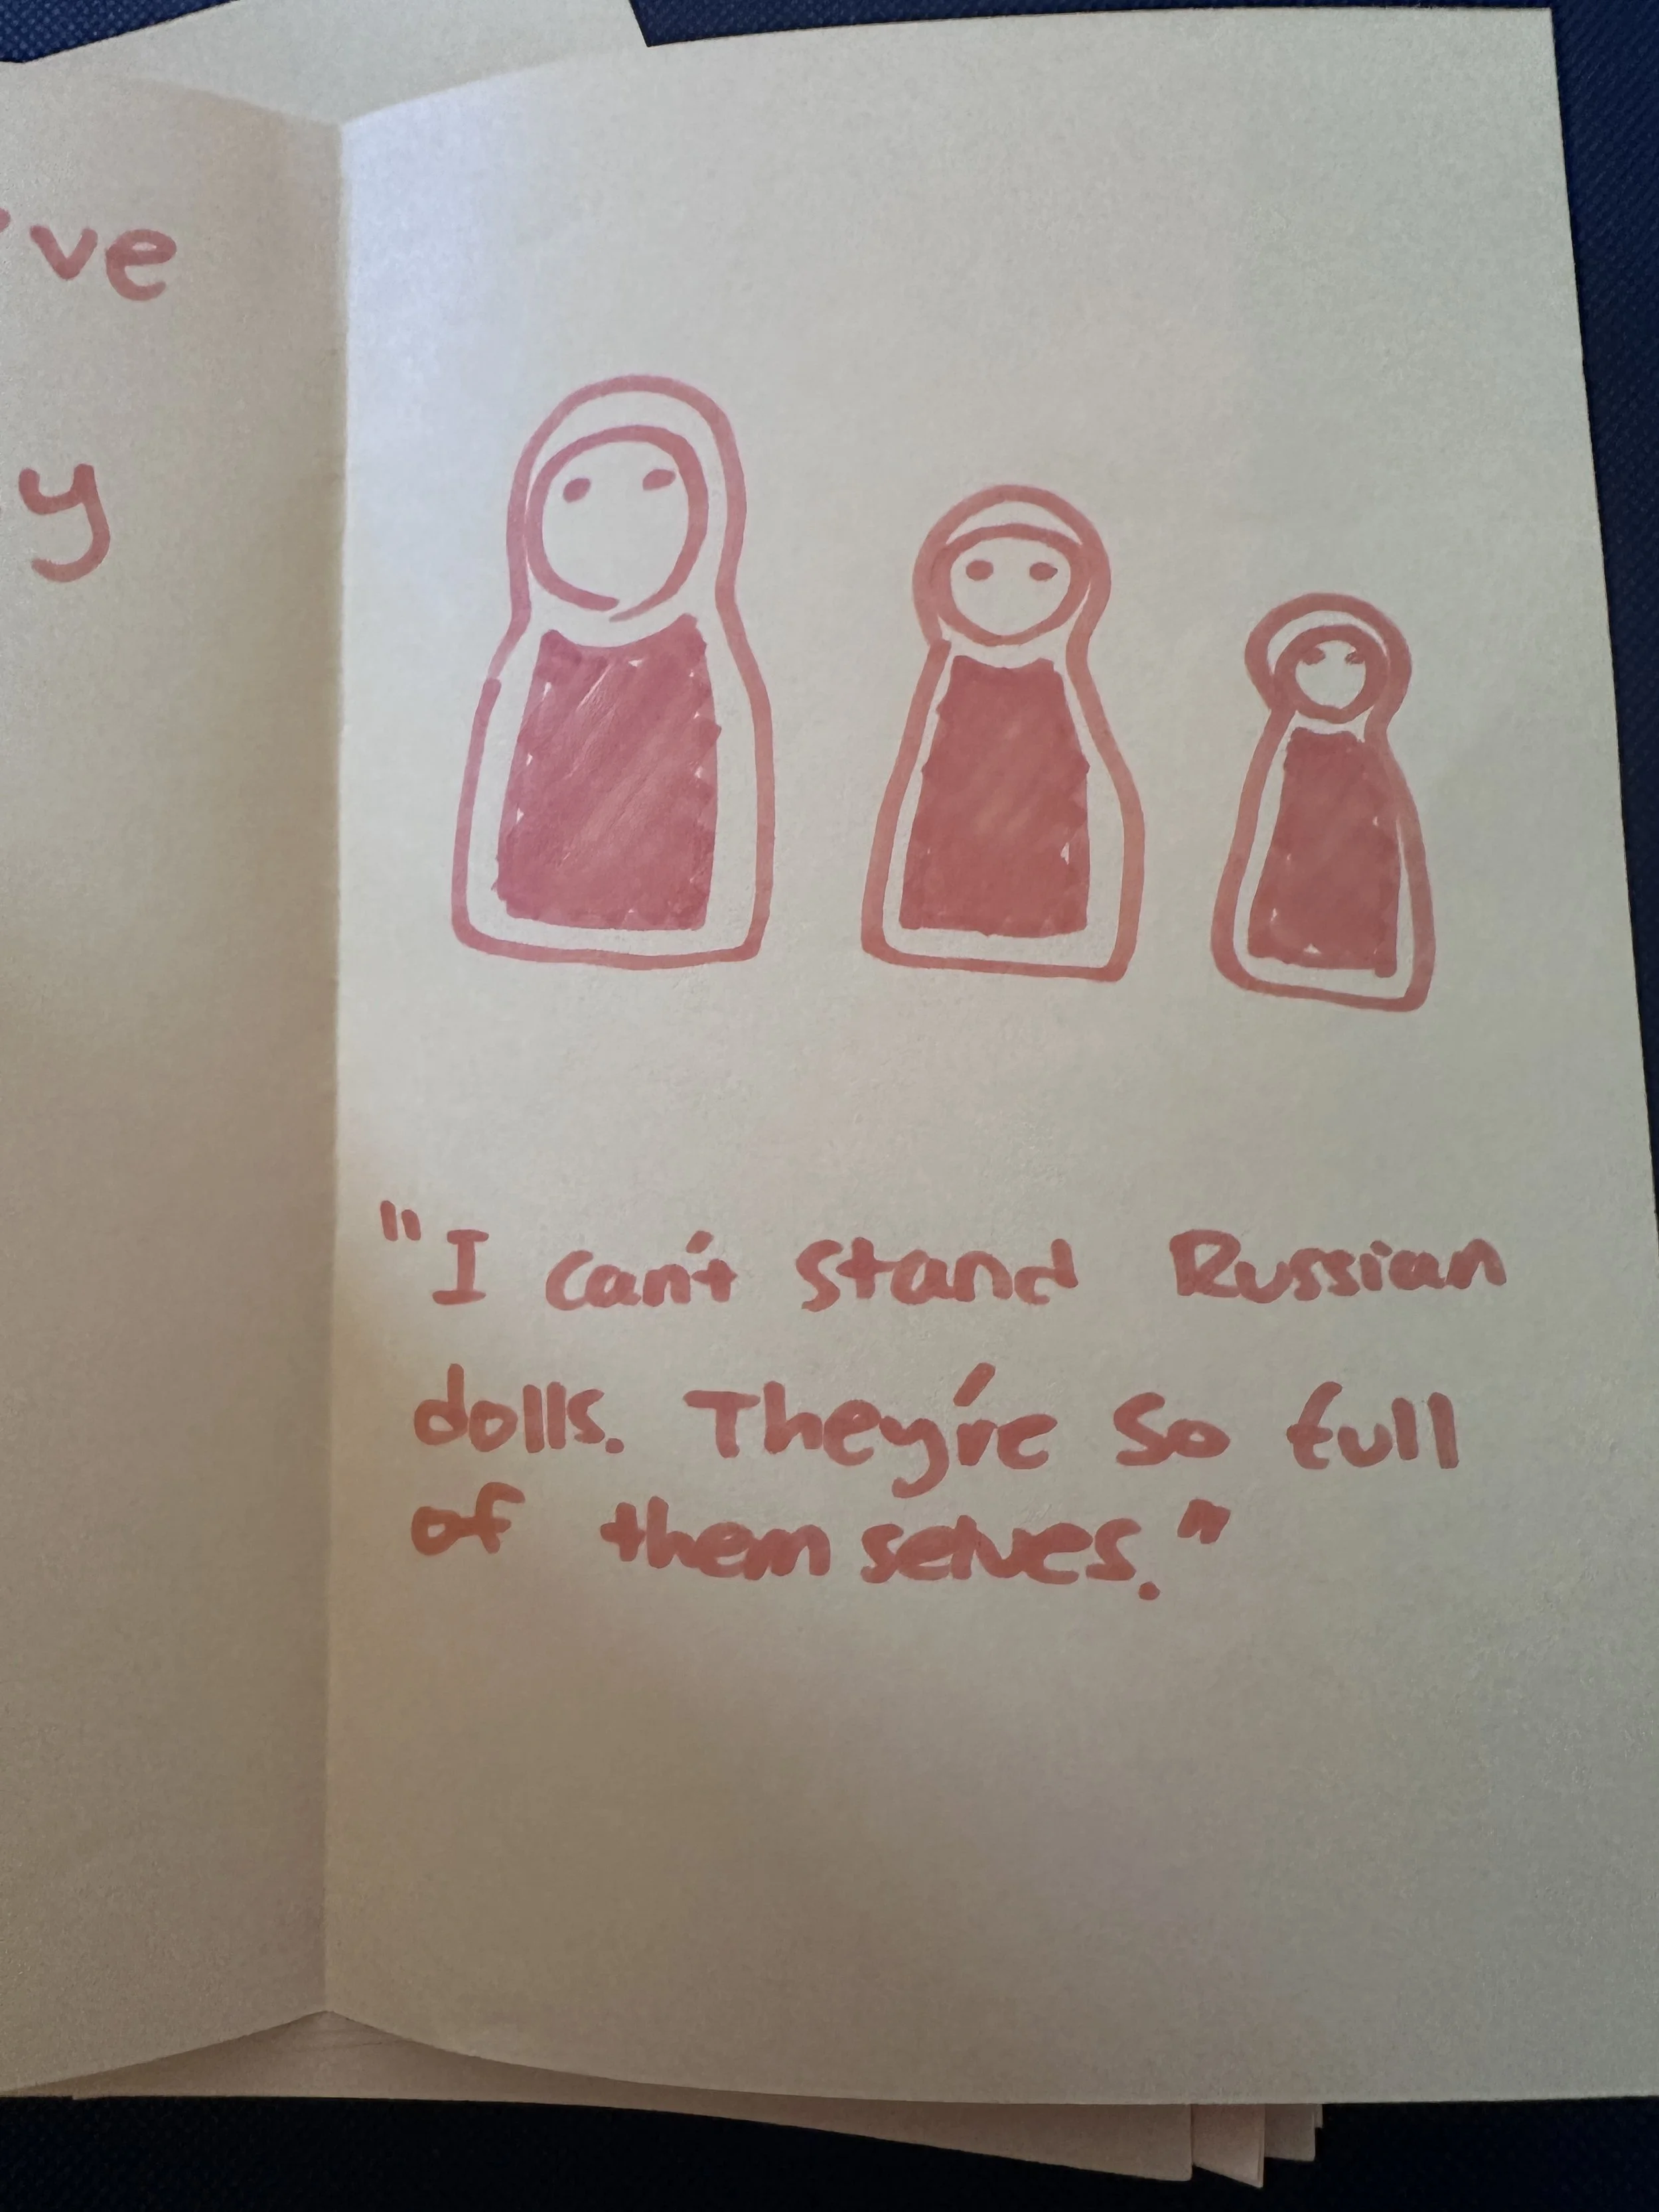 've
y
"I can't stand Russian
dolls. They're so full
of themselves."